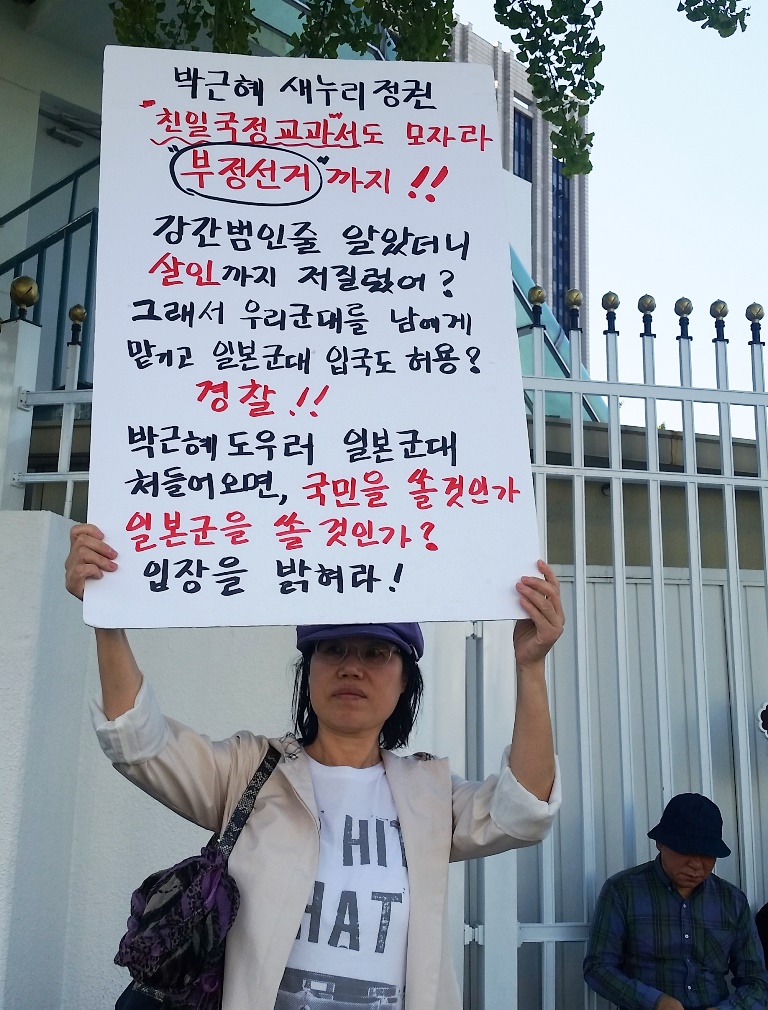 박근혜 새누리정권
"친일국정교과서"도 모자라
"부정선거"까지 !!
강간범인줄 알았더니
살인까지 저질렀어?
그래서 우리군대를 남에게
맡기고 일본군대 입국도 허용?
경찰!!
박근혜 도우러 일본군대
쳐들어오면, 국민을 쏠것인가
일본군을 쏠 것인가?
입장을 밝혀라!
HIT
HAT